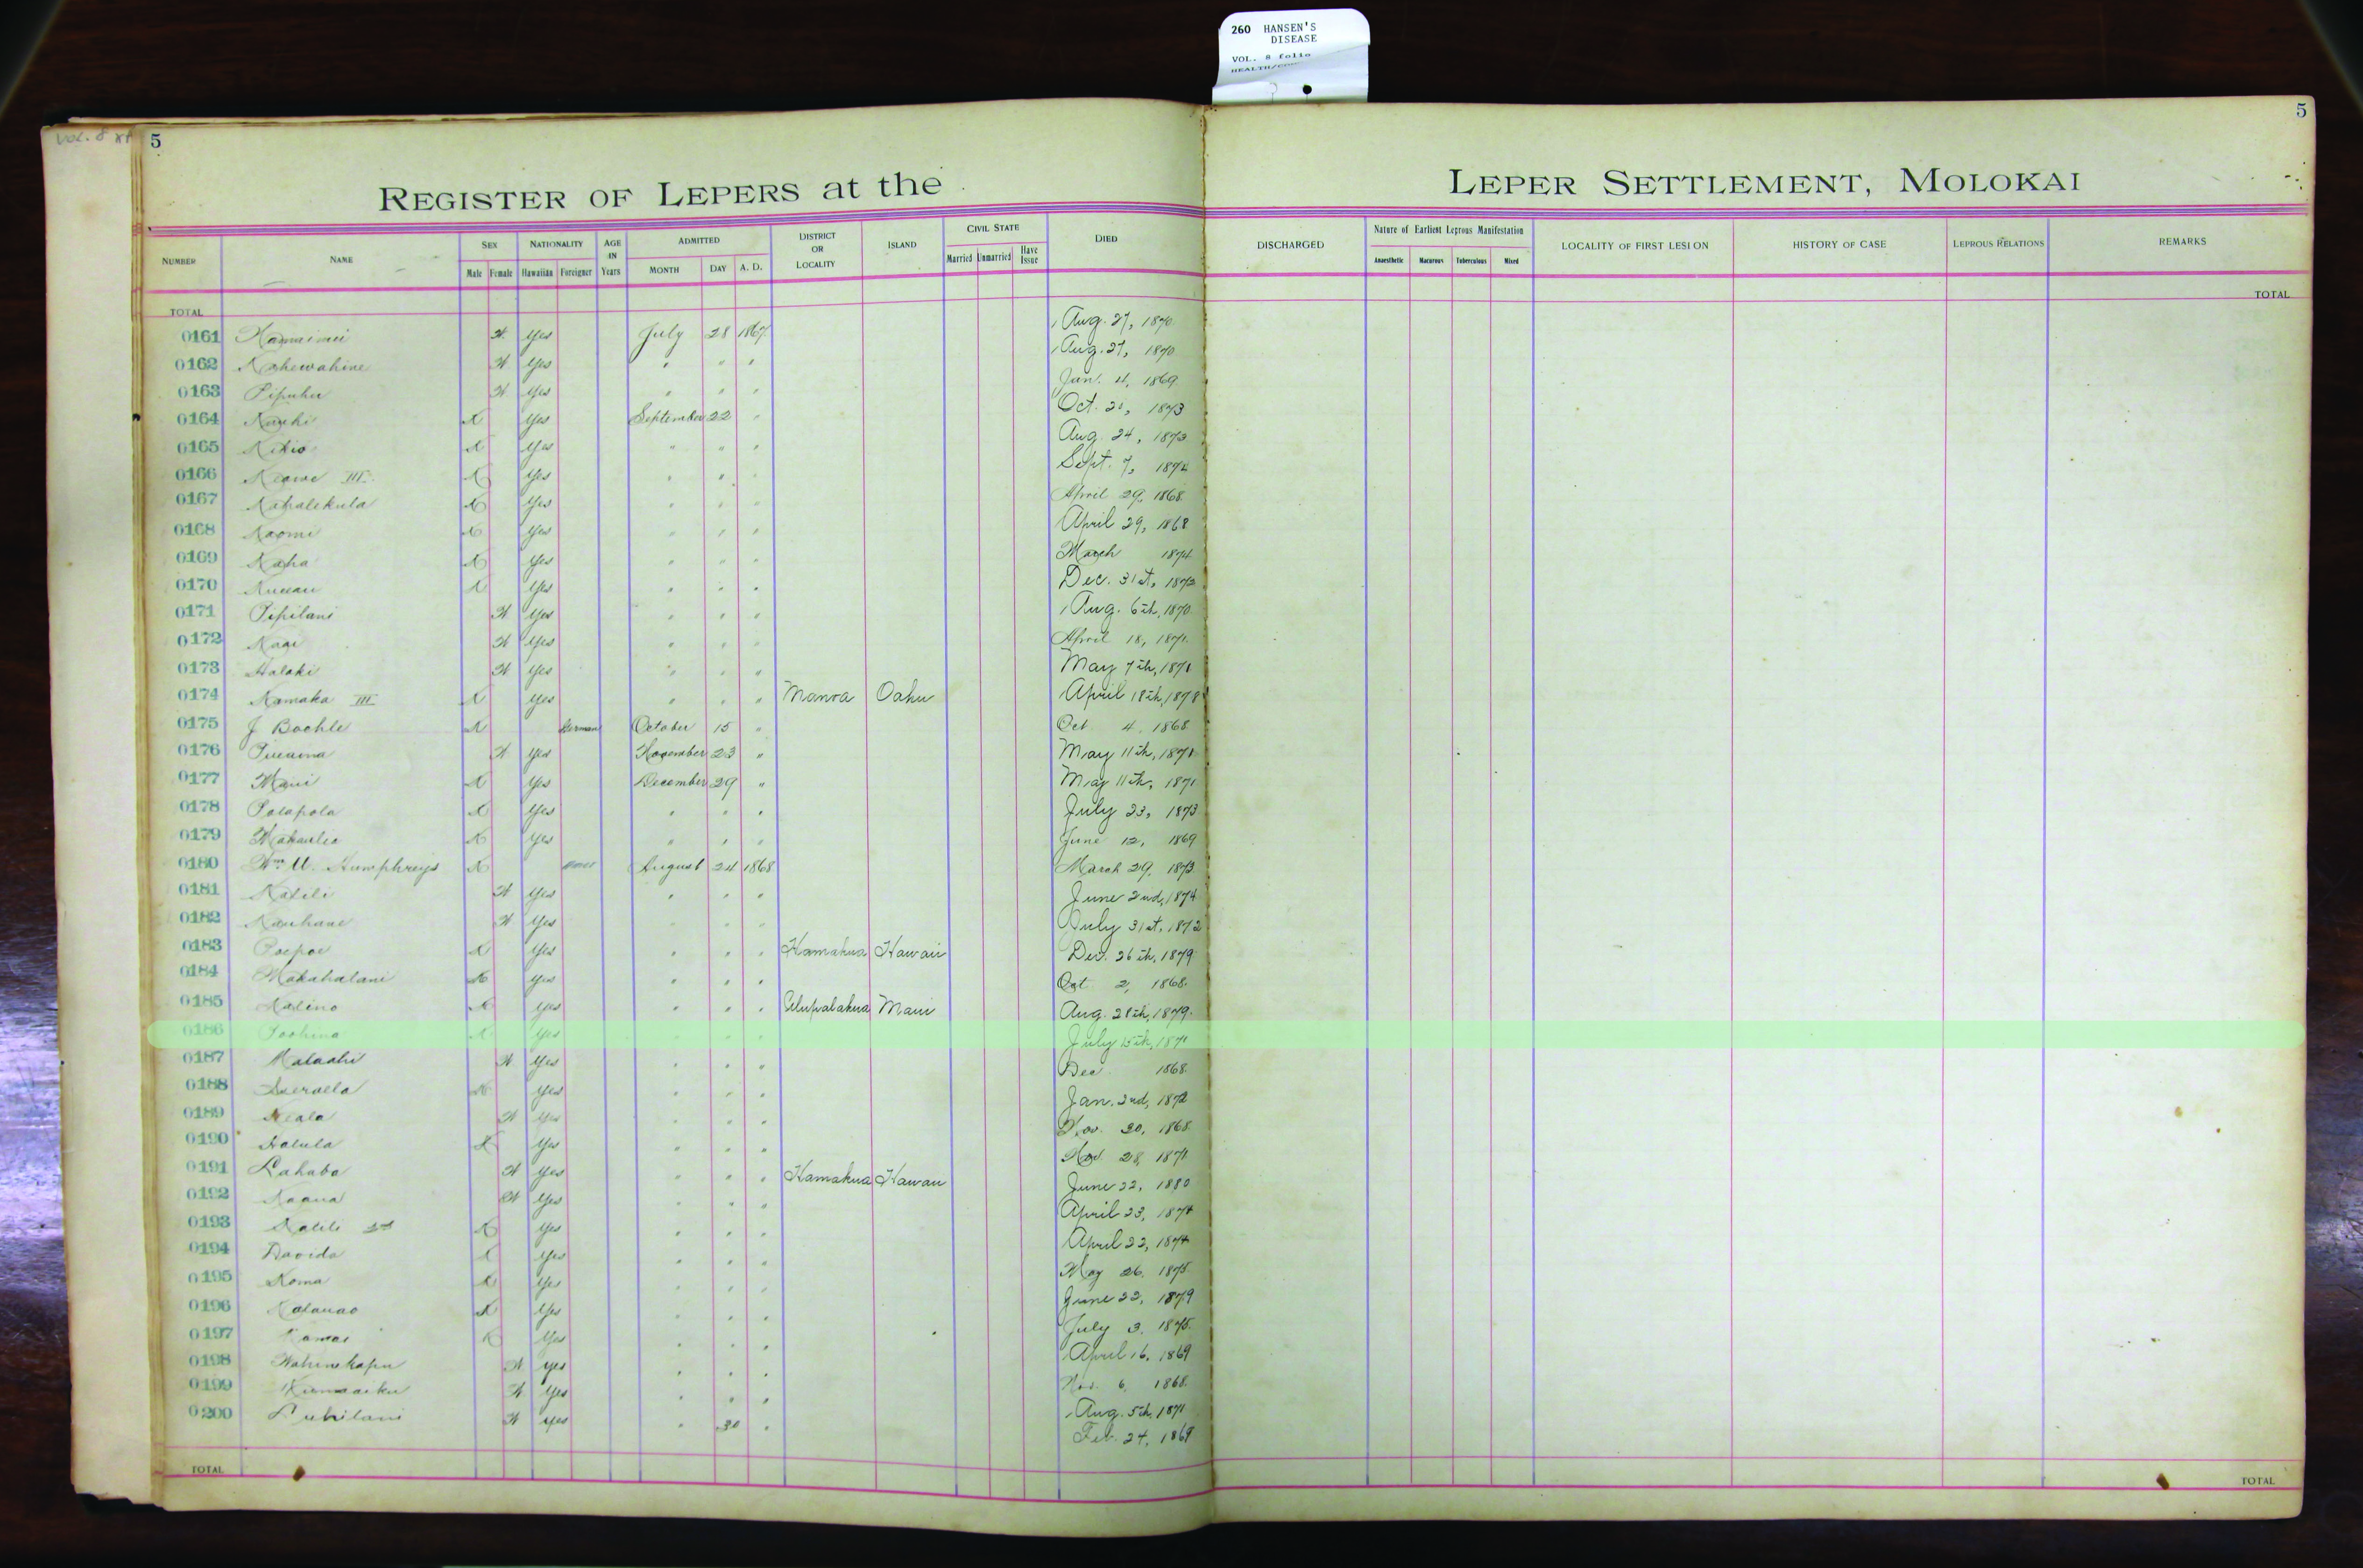 260 HANSEN'S
DISEASE
VOL. 8 folio
VOL. 8
5
5
REGISTER OF LEPERS at the LEPER SETTLEMENT, MOLOKAI
NUMBER NAME SEX Male Female NATIONALITY Hawaiian Foreigner AGE IN Years ADMITTED MONTH DAY A. D. DISTRICT OR LOCALITY ISLAND CIVIL STATE Married Unmarried Have Issue DIED DISCHARGED Nature of Earliest Leprous Manifestation Anaesthetic Macurous Tuberculous Mixed LOCALITY OF FIRST LESION HISTORY OF CASE LEPROUS RELATIONS REMARKS
TOTAL TOTAL
0161 Yes July 28 1867 Aug. 27, 1870
0162 Kahewahine Yes " " " Aug. 27, 1870
0163 Yes " " " Jan. 4, 1869
0164 Yes September 22 " Oct. 1873
0165 Yes " " " Aug. 24, 1873
0166 Keawe III Yes " " " Sept. 7, 1874
0167 Kahalekula Yes " " " April 29, 1868
0168 Naomi Yes " " " April 29, 1868
0169 Kaha Yes " " " March 1874
0170 Yes " " " Dec. 31st, 1873
0171 Pipilani Yes " " " Aug. 6th, 1870
0172 Yes " " " April 18, 1871
0173 Halaki Yes " " " May 7th, 1871
0174 Kamaka III Yes " " " Manoa Oahu April 18th, 1878
0175 J Bochle German October 15 " Oct 4, 1868
0176 Yes November 23 " May 11th, 1871
0177 Maui Yes December 29 " May 11th, 1871
0178 Polapola Yes " " " July 23, 1873
0179 Yes " " " June 12, 1869
0180 Wm. Humphreys August 24 1868 March 29, 1873
0181 Kalili Yes " " " June 2nd, 1874
0182 Kauhane Yes " " " July 31st, 1872
0183 Poepoe Yes " " " Hamakua Hawaii Dec. 26th, 1879
0184 Makahalani Yes " " " Oct 2, 1868
0185 Kalino Yes " " " Ulupalakua Maui Aug. 28th, 1879
0186 Yes " " " July 15th, 1871
0187 Yes " " " Dec 1868
0188 Yes " " " Jan. 2nd, 1872
0189 Yes " " " Nov. 30, 1868
0190 Halula Yes " " " Nov. 28, 1871
0191 Yes " " " Hamakua Hawaii June 22, 1880
0192 Kaaua Yes " " " April 23, 1874
0193 Kalili 2nd Yes " " " April 22, 1874
0194 Davida Yes " " " May 26, 1875
0195 Koma Yes " " " June 22, 1879
0196 Yes " " " July 3, 1875
0197 Kamai Yes " " " April 16, 1869
0198 Wahinekapu Yes " " " Nov. 6, 1868
0199 Yes " " " Aug. 5th, 1871
0200 Yes " 30 " Feb. 24, 1869
TOTAL TOTAL